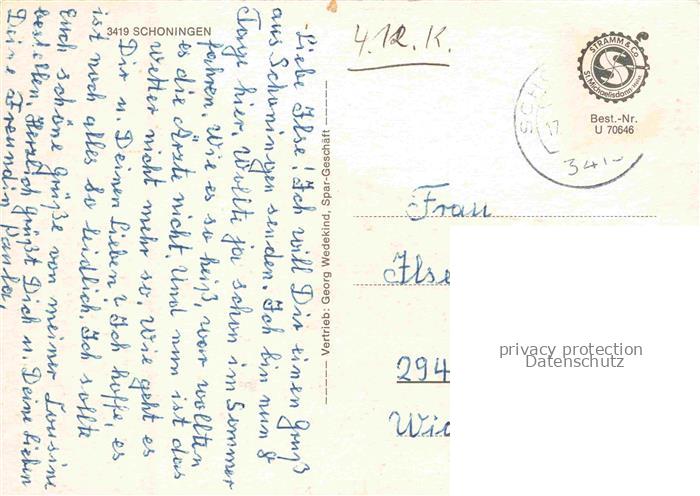 3419 SCHONINGEN
Liebe Ilse! Ich will Dir einen Gruß
aus Schoningen senden. Ich bin nun 8
Tage hier, wollte ja schon im Sommer
fahren. Wie es so heiß, war wollten
es die Ärzte nicht. Und nun ist das
wetter nicht mehr so. Wie geht es
Dir u. Deinen Lieben? Ich hoffe, es
ist noch alles so leidlich. Ich sollte
Euch schöne Grüße von meiner Cousine
bestellen. Herzlich grüßt Dich u. Deine lieben
Deine Freundin
Vertrieb: Georg Wedekind, Spar-Geschäft
4.12. K.
STRAMM & Co.
St. Michaelisdonn
Best.-Nr.
U 70646
SCHO
17
341
Frau
Ilse
294
privacy protection
Datenschutz